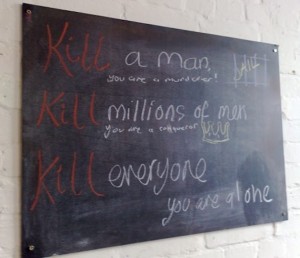 Kill a man,
you are a murderer!
Kill millions of men
you are a conqueror
Kill everyone
you are alone